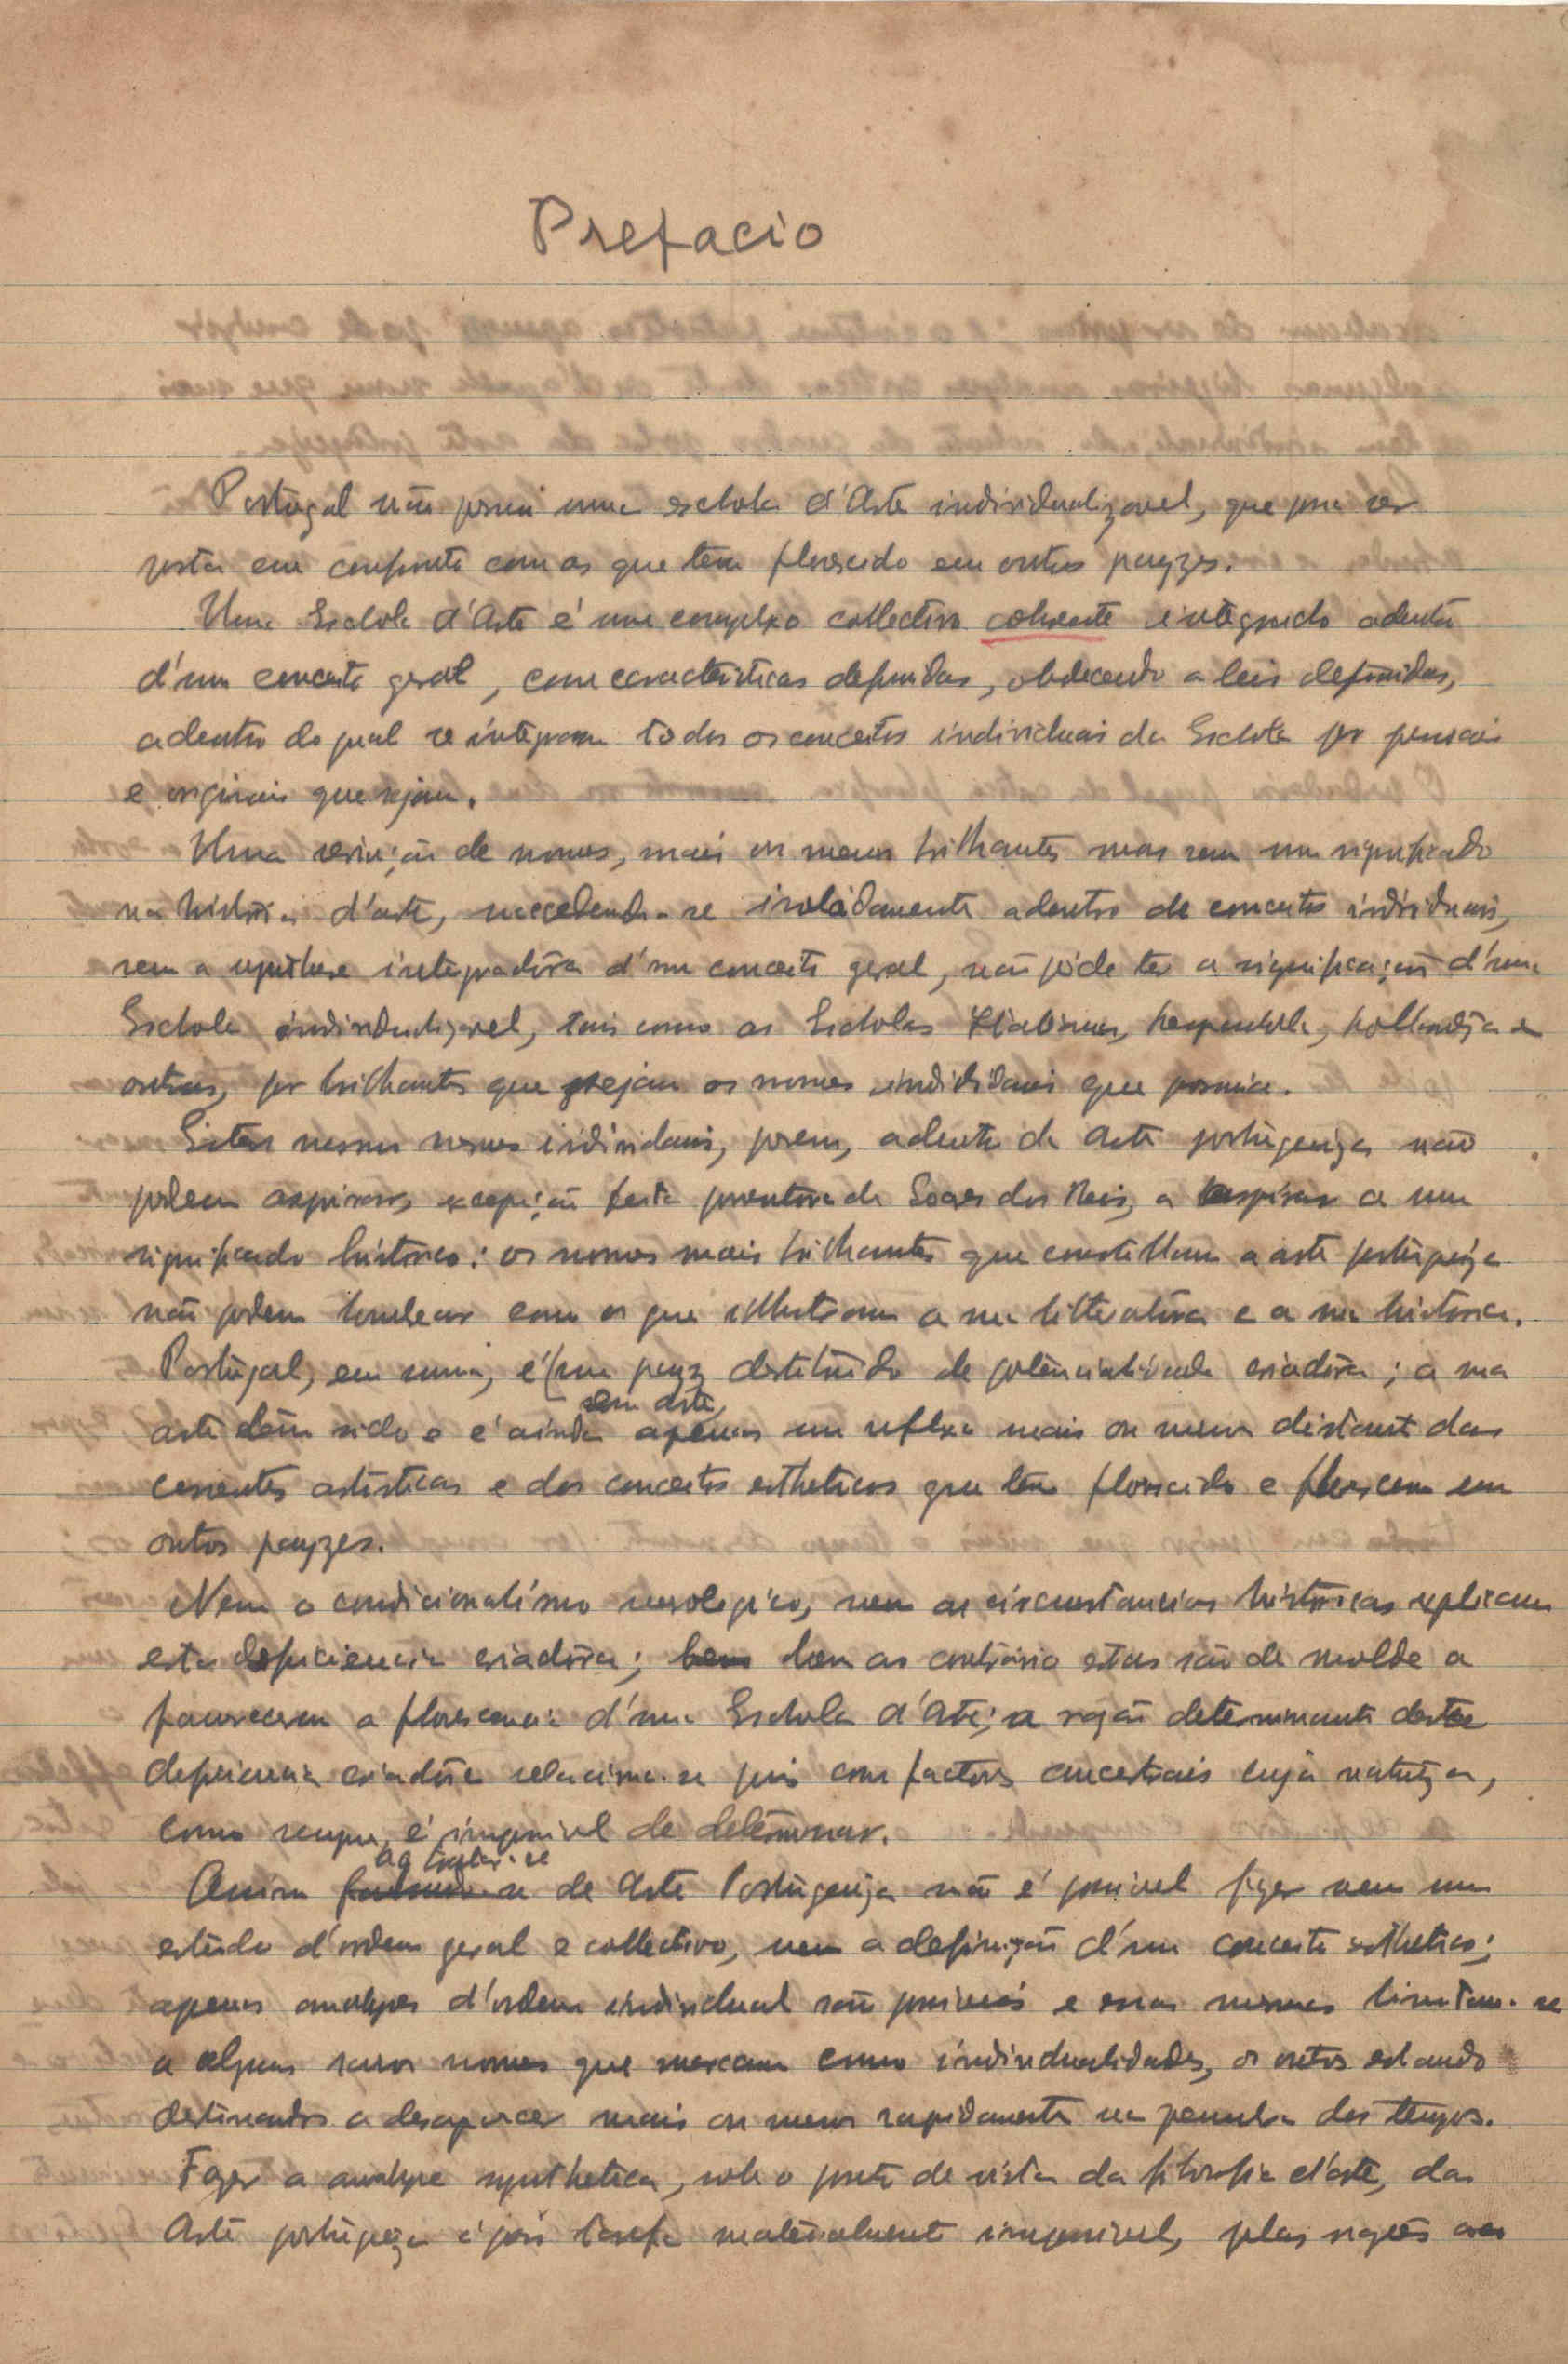 Prefacio
Portugal não possui uma eschola d'Arte individualizavel, que possa ser
posta em confronto com as que tem florescido em outros payzes.
Uma Eschola d'Arte é um complexo collectivo coherente integrado adentro
d'um conceito geral, com caracteristicas definidas, obdecendo a leis definidas,
adentro do qual se integram todos os conceitos individuais da Eschola por pessoais
e originais que sejam.
Uma seriação de nomes, mais ou menos brilhantes mas sem um significado
na história d'arte, succedendo-se isoladamente adentro de conceitos individuais,
sem a synthese integradôra d'um conceito geral, não póde ter a significação d'uma
Eschola individualizavel, tais como as Escholas Italiana, hespanhola, hollandeza e
outras, por brilhantes que sejam os nomes individuais que possuia.
Estes mesmos nomes individuais, porem, adentro da Arte portugueza não
podem aspirar, excepção feita porventura de Soares dos Reis, a aspirar a um
significado historico: os nomes mais brilhantes que constellam a arte portugueza
não podem hombrear com os que illustram a sua litteratura e a sua historia.
Portugal, em suma, é um payz destituido de potencialidade criadôra; a sua
em arte,
arte têm sido e é ainda apenas um reflexo mais ou menos distante das
correntes artisticas e dos conceitos estheticos que têm florescido e florescem em
outros payzes.
Nem o condicionalismo mesologico, nem as circunstancias históricas explicam
esta deficiencia criadôra; bem bem ao contrário estas são de molde a
favorecerem a florescencia d'uma Eschola d'Arte; a razão determinante desta
deficiencia criadôra relaciona-se pois com factores ancestrais cuja natureza,
como sempre, é impossivel de determinar.
ao tratar-se
Assim de Arte Portugueza não é possivel fazer nem um
estudo d'ordem geral e collectivo, nem a definição d'um conceito esthetico;
apenas analyses d'ordem individual são possiveis e essas mesmas limitam-se
a alguns raros nomes que marcam como individualidades, os outros estando
destinados a desaparecer mais ou menos rapidamente na penumbra dos tempos.
Fazer a analyse synthetica, sob o ponto de vista da filosofia d'arte, da
Arte portugueza é pois tarefa materialmente impossivel, pelas razões